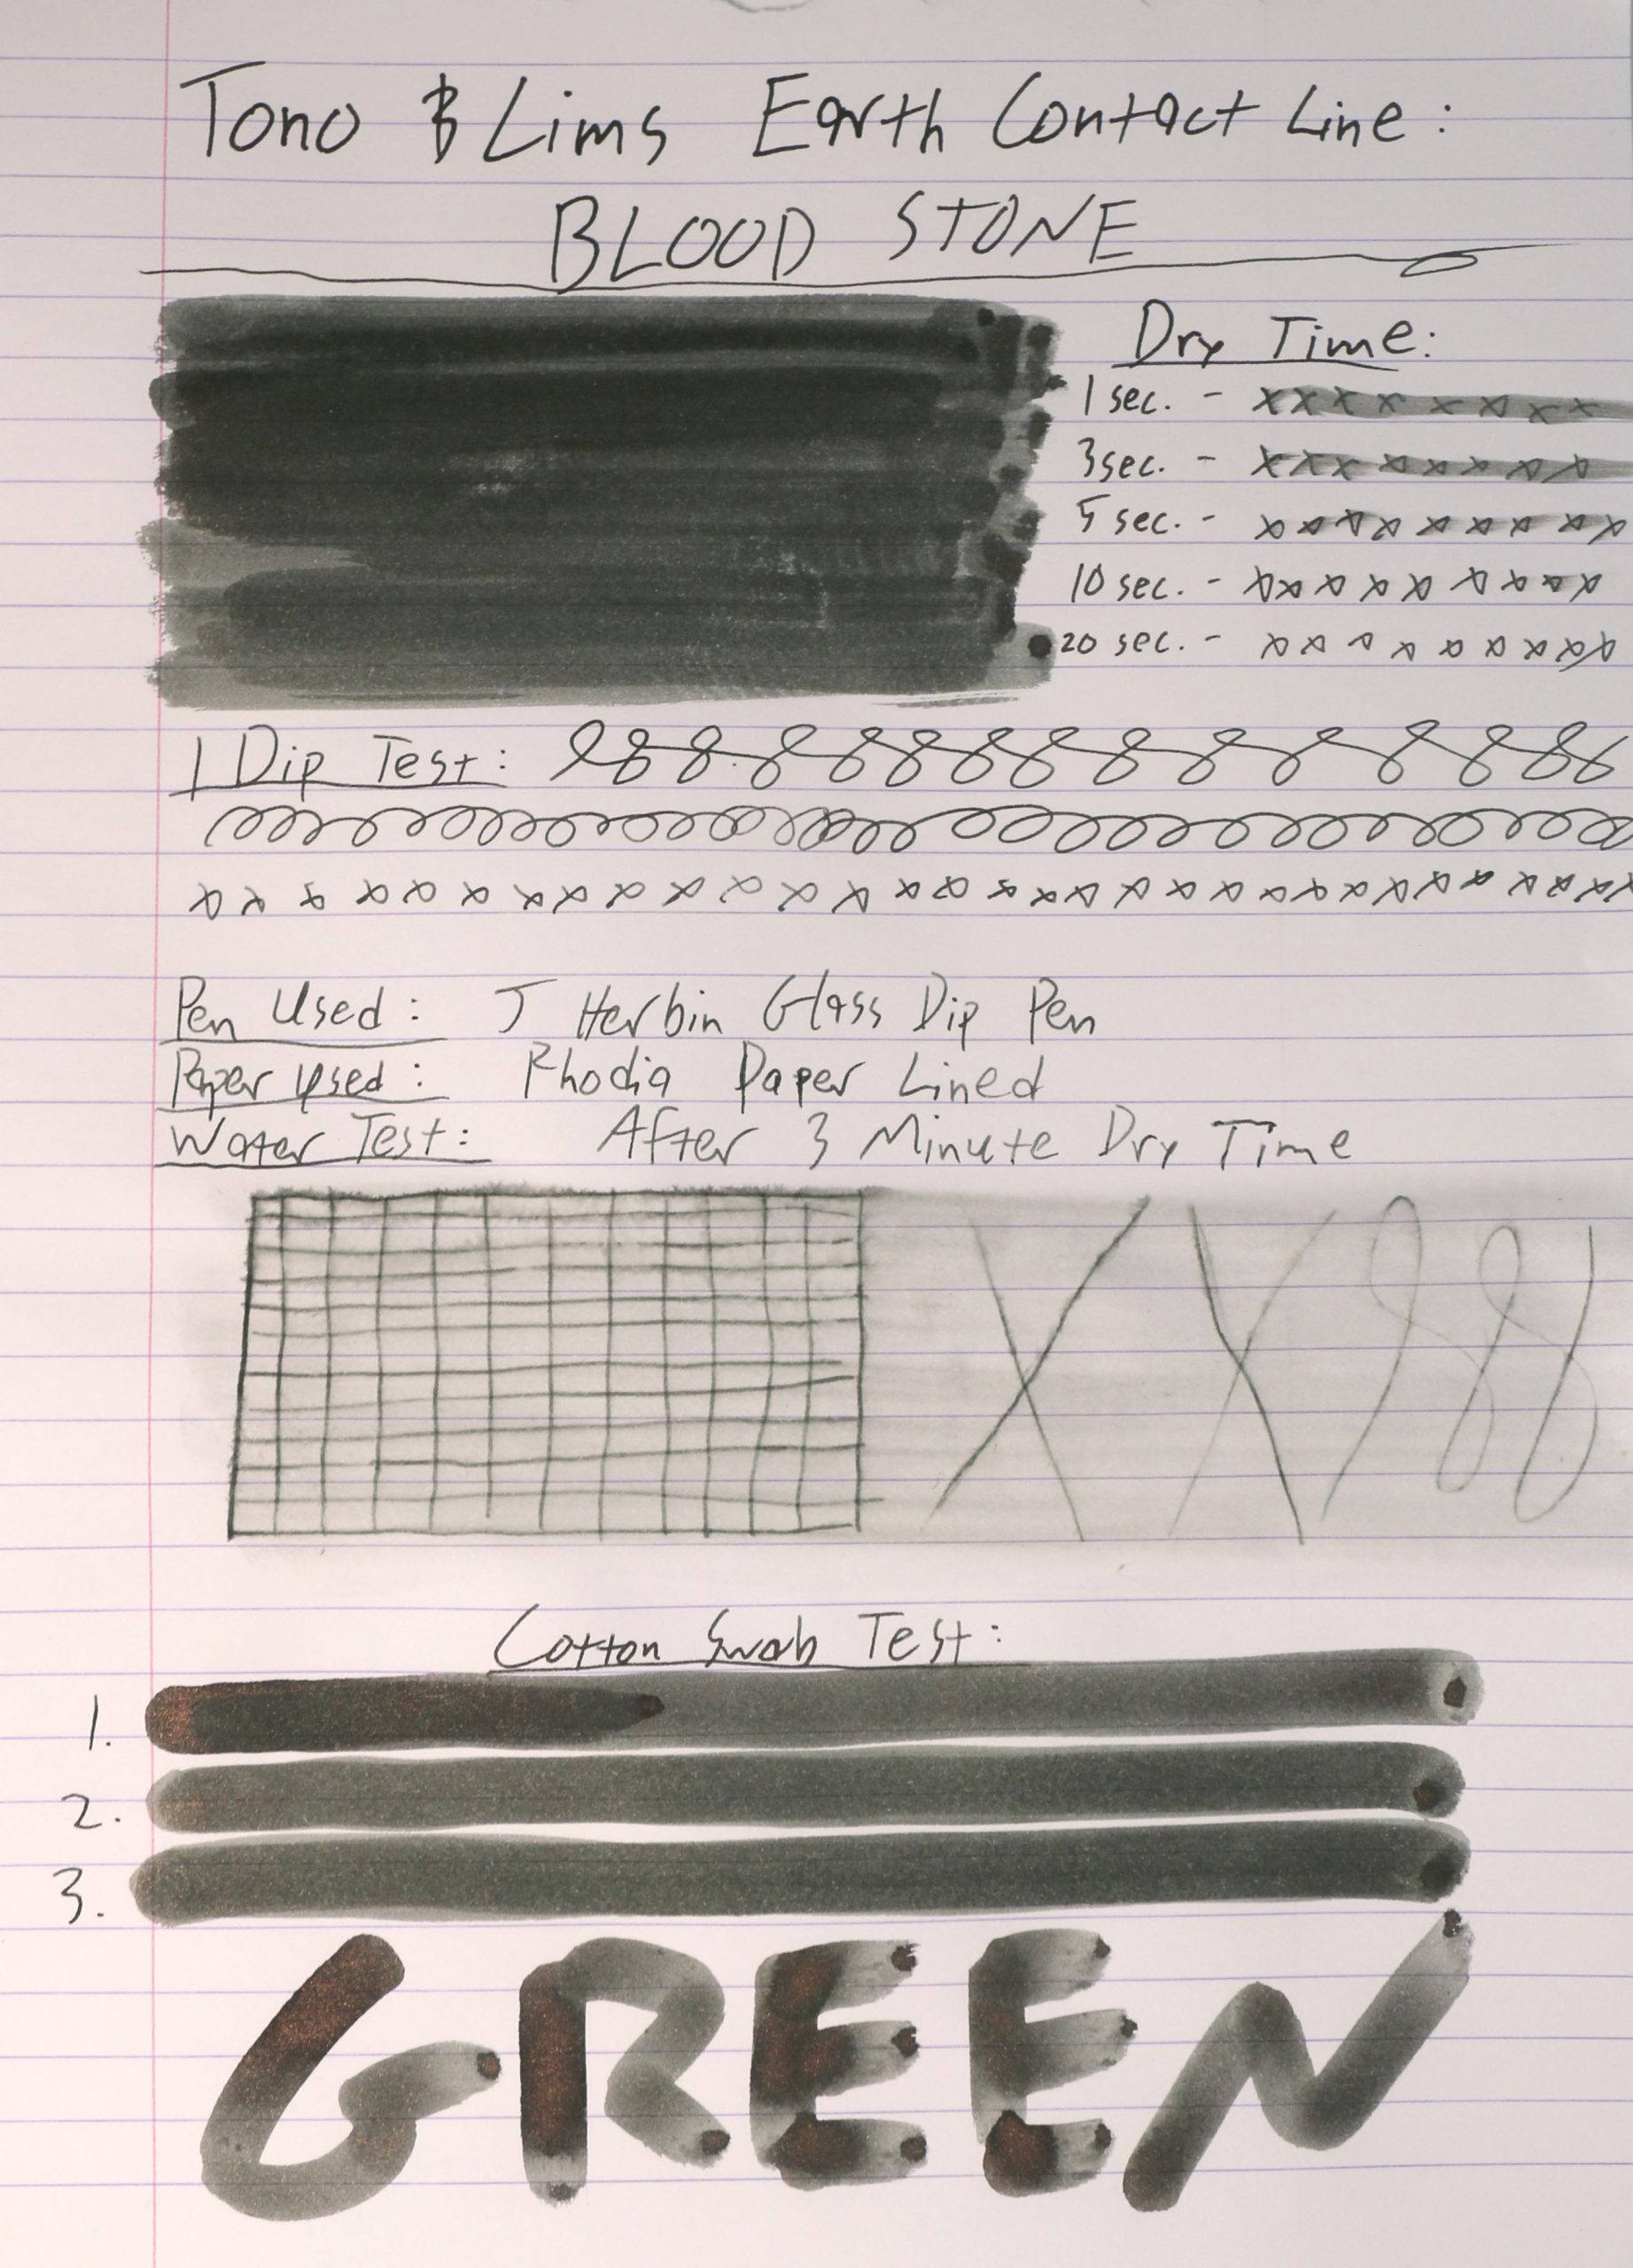 Tono & Lims Earth Contact Line:
BLOOD STONE
Dry Time:
1 sec. - xxxxxxxx
3 sec. - xxxxxxxx
5 sec. - xxxxxxxxx
10 sec. - xxxxxxxxx
20 sec. - xxxxxxxxx
1 Dip Test:
Pen Used: J Herbin Glass Dip Pen
Paper Used: Rhodia Paper Lined
Water Test: After 3 Minute Dry Time
Cotton Swab Test:
1.
2.
3.
GREEN